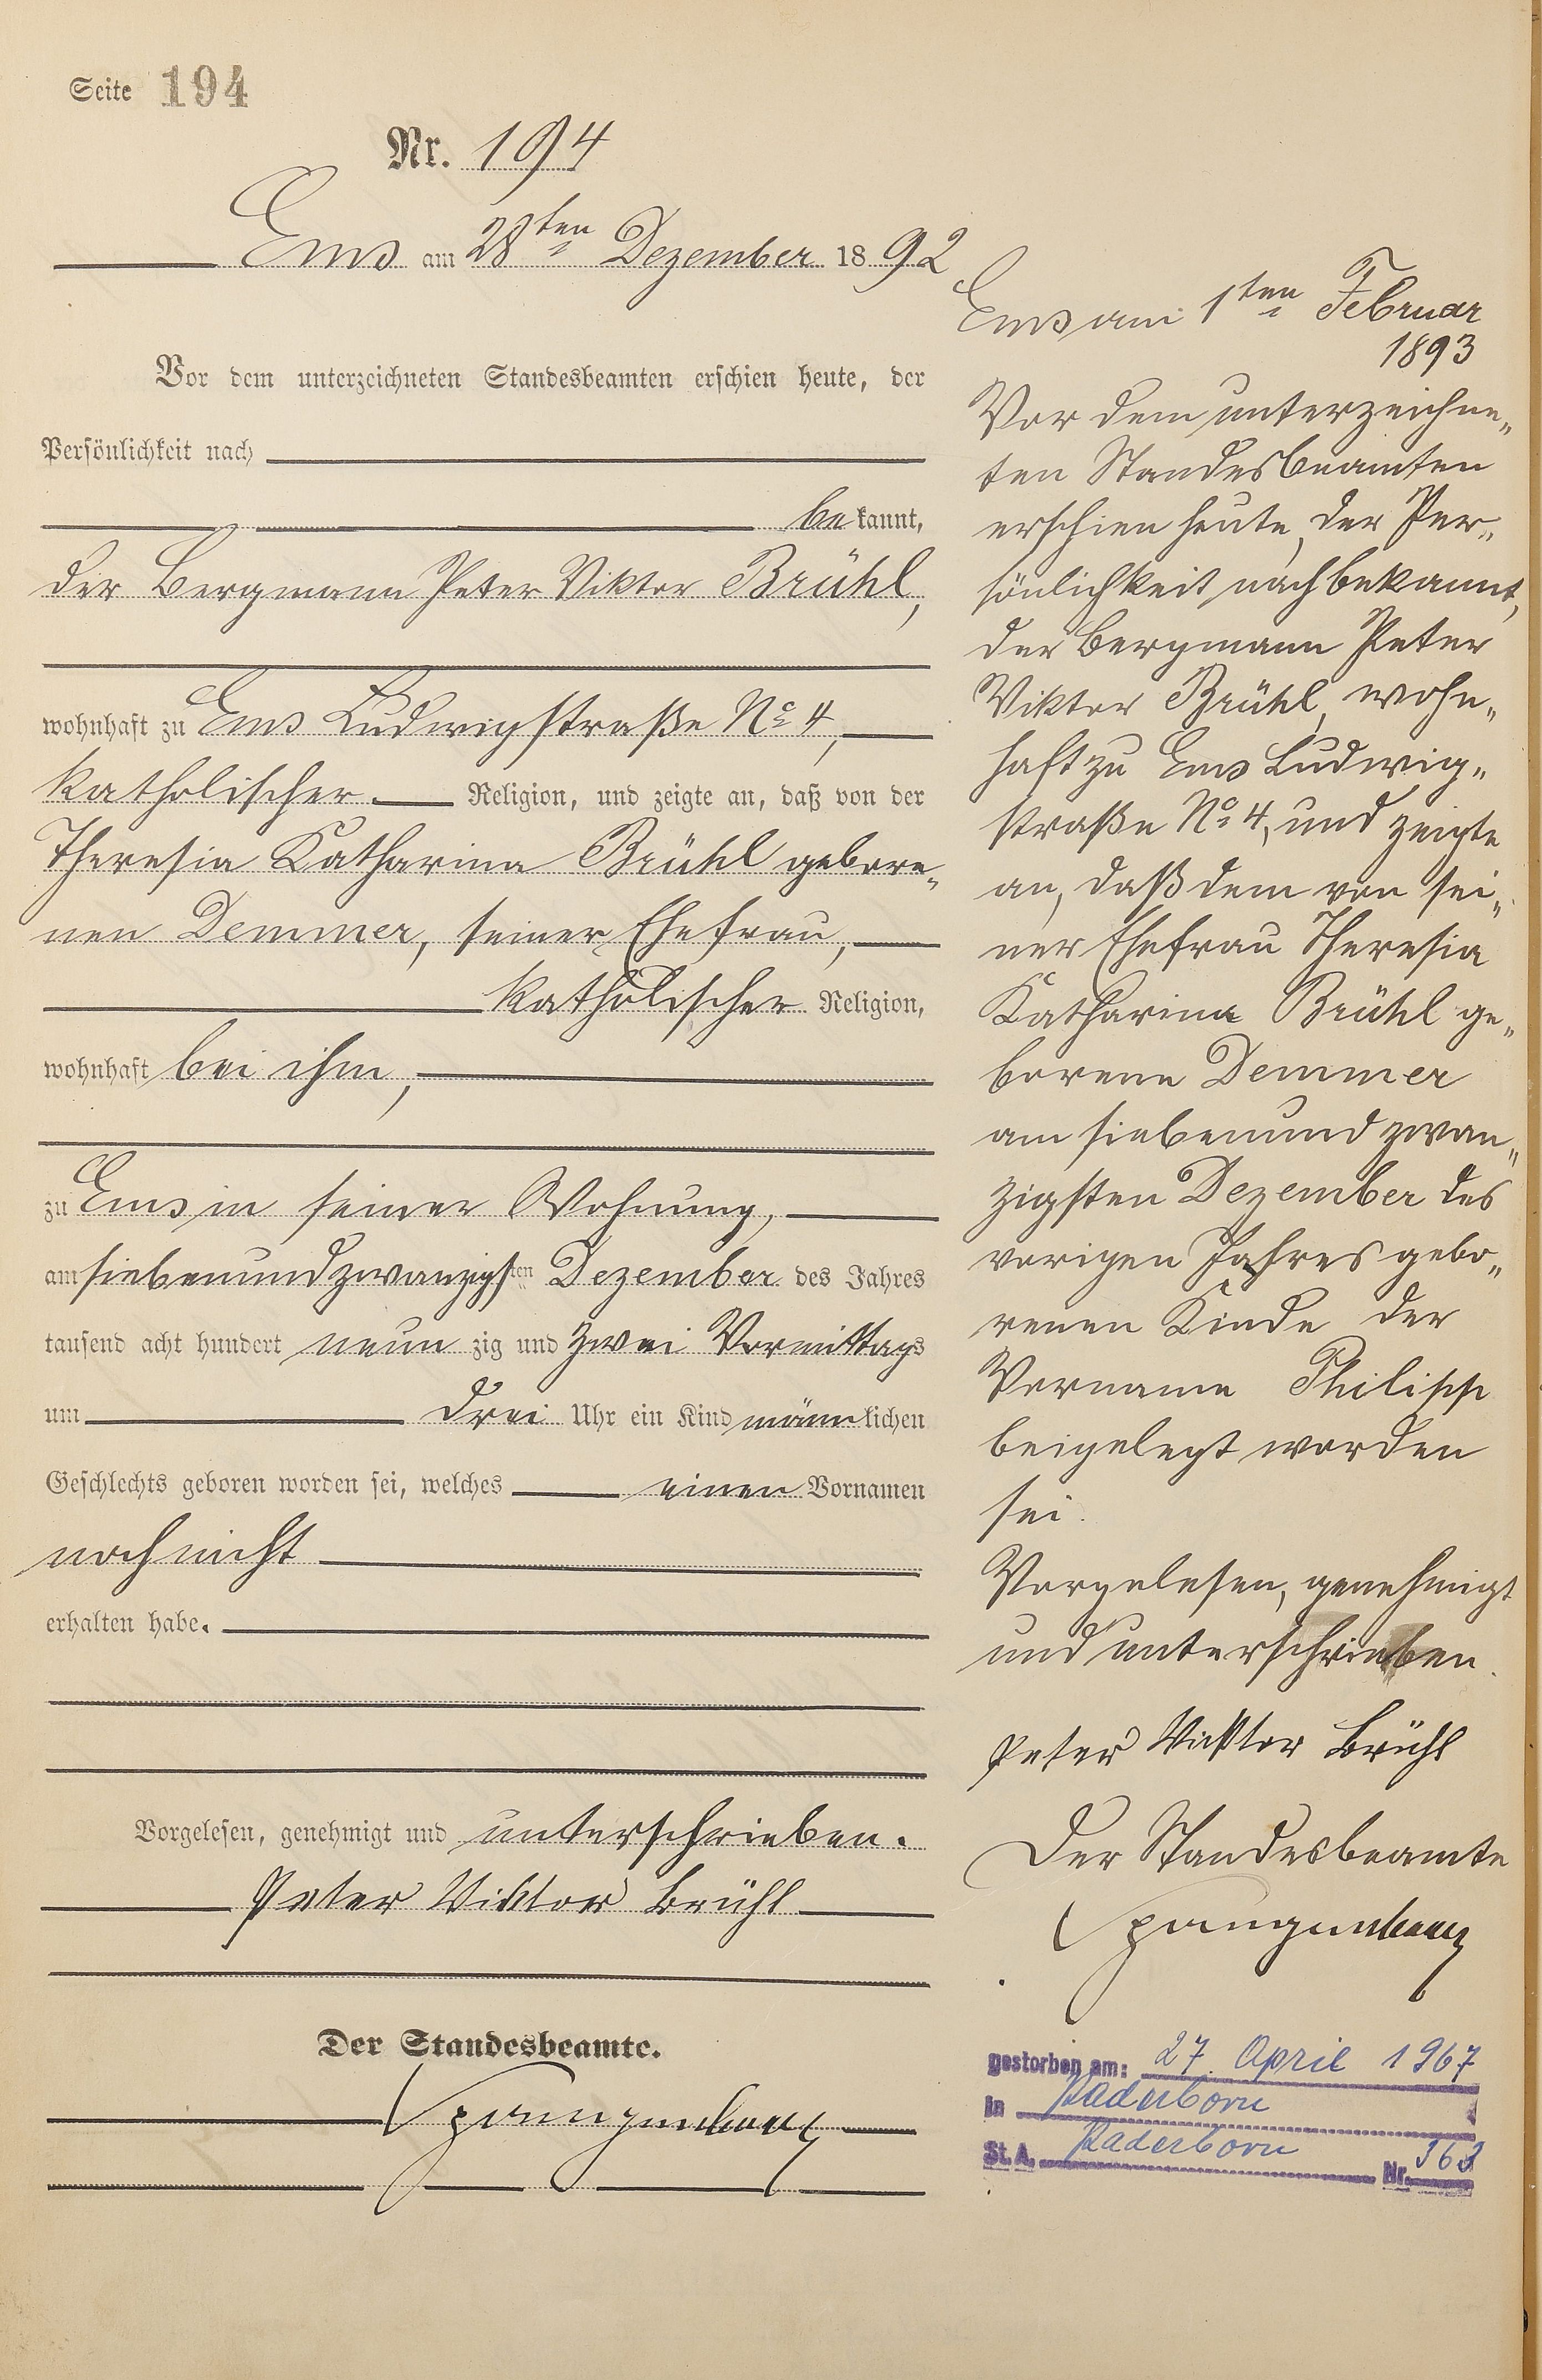 Seite 194
Nr. 194
Ems am 28ten Dezember 1892
Vor dem unterzeichneten Standesbeamten erschien heute, der
Persönlichkeit nach
bekannt,
der Bergmann Peter Viktor Brühl,
wohnhaft zu Ems Ludwigstraße No 4,
katholischer Religion, und zeigte an, daß von der
Theresia Katharina Brühl gebore„
nen Demmer, seiner Ehefrau,
katholischer Religion,
wohnhaft bei ihm,
zu Ems in seiner Wohnung,
am siebenundzwanzigsten Dezember des Jahres
tausend acht hundert neunzig und zwei Vormittags
um drei Uhr ein Kind männlichen
Geschlechts geboren worden sei, welches einen Vornamen
noch nicht
erhalten habe.
Vorgelesen, genehmigt und unterschrieben.
Peter Viktor Brühl
Der Standesbeamte.
Ems am 1ten Februar
1893
Vor dem unterzeichne„
ten Standesbeamten
erschien heute, der Per„
sönlichkeit nach bekannt,
der Bergmann Peter
Viktor Brühl, wohn„
haft zu Ems Ludwig„
straße No 4, und zeigte
an, daß dem von sei„
ner Ehefrau Theresia
Katharina Brühl ge„
borene Demmer
am siebenundzwan„
zigsten Dezember des
vorigen Jahres gebo„
renen Kinde der
Vorname Philipp
beigelegt worden
sei.
Vorgelesen, genehmigt
und unterschrieben.
Peter Viktor Brühl
Der Standesbeamte
gestorben am: 27. April 1967
in Paderborn
St. A. Paderborn Nr. 363